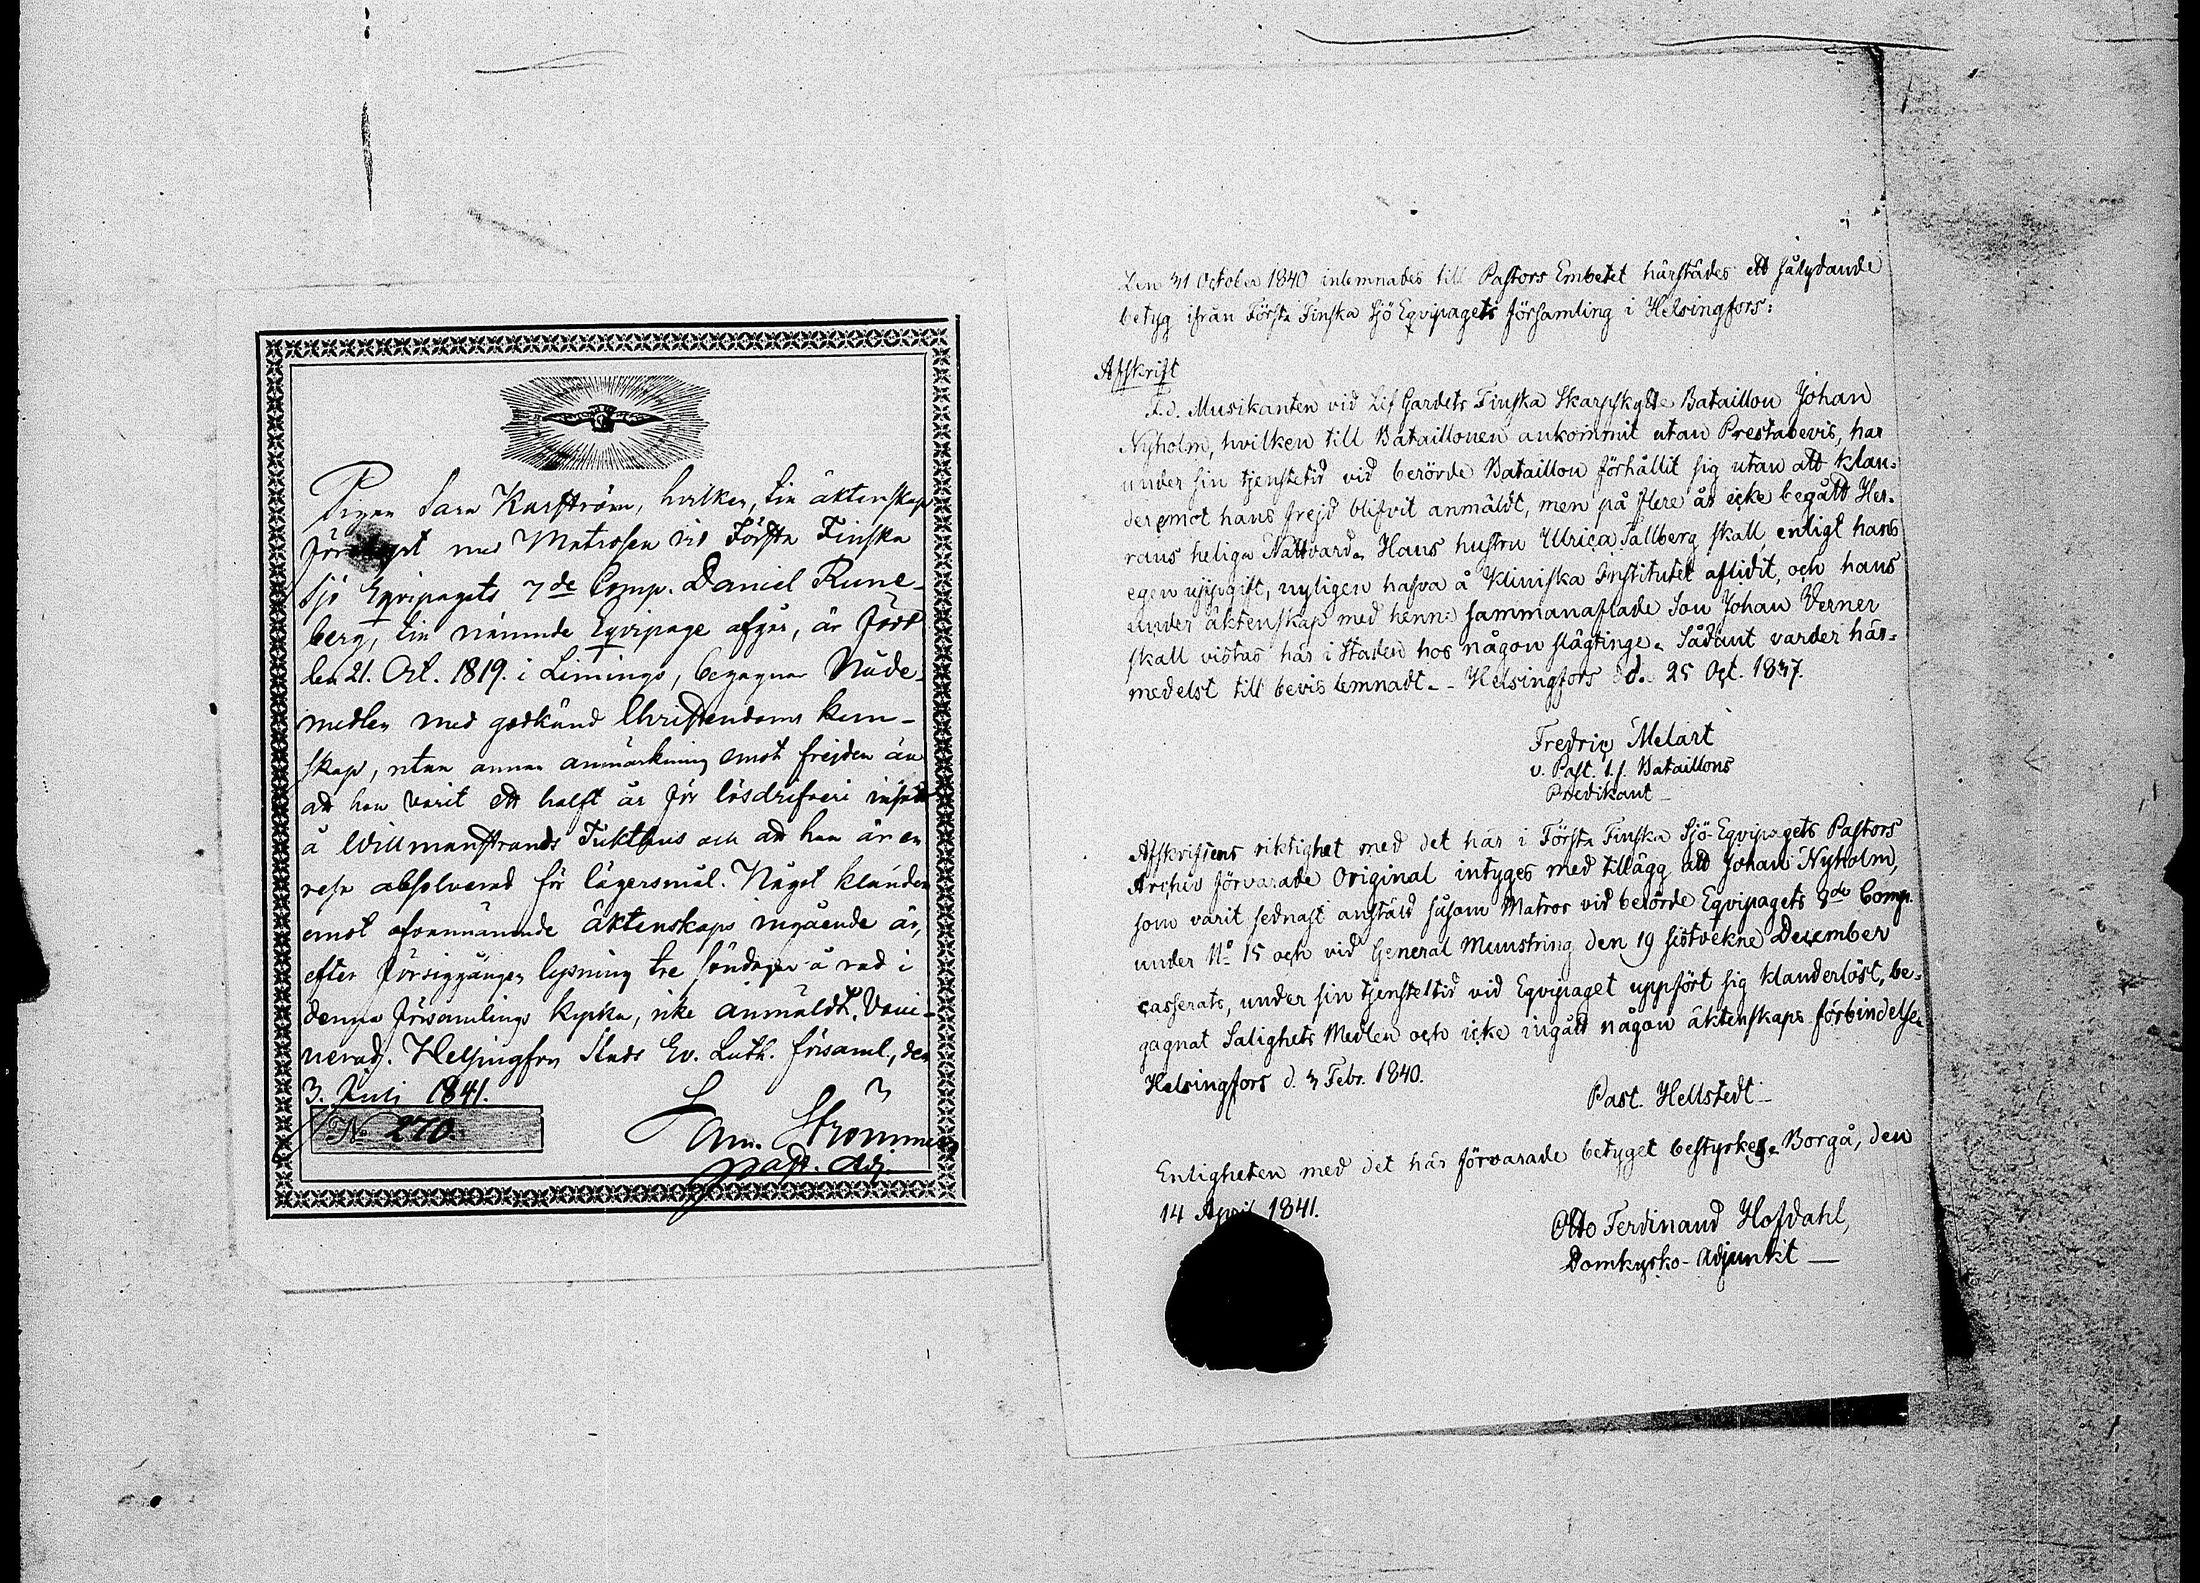 Pigan Sara Karström, hvilken, till äktenskap
före## med Matrosen vid Första Finska
Sjö Eqvipagets 7de Comp. Daniel Rune-
berg, till nämnde Eqvipage afgår, är född
den 21. Oct. 1819. i Limingo, begagnar Nåde-
medlen med godkänd Christendoms kun-
skap, utan annan anmärkning emot frejden än
att hon varit ett halft år för lösdrifveri insatt
å Willmanstrands Tukthus och att hon är en
resa absolverad för lägersmål. Något klander
emot ofvannämnde äktenskaps ingående är,
efter försiggången lysning tre söndagar å rad i
denna församlings kyrka, icke anmäldt.
nerad. Helsingfors Stads Ev. Luth. församl., den
3. Juli 1841.
No 270.
Past. Adj.
Den 31 October 1840 inlemnades till Pastors Embetet härstädes ett sålydande
betyg ifrån Första Finska Sjö Eqvipagets församling i Helsingfors:
Afskrift
F.d. Musikanten vid Lif Gardets Finska Skarpskytte Bataillon Johan
Nyholm, hvilken till Bataillonen ankommit utan Prestabevis, har
under sin tjenstetid vid berörde Bataillon förhållit sig utan att klan-
der emot hans frejd blifvit anmäldt, men på flere år icke begått Her-
rans heliga Nattvard. Hans hustru Ulrica Sallberg skall enligt hans
egen uppgift, nyligen hafva å Kliniska Institutet aflidit, och hans
under äktenskap med henne sammanaflade Son Johan Verner
skall vistas här i Staden hos någon slägtinge. Sådant varder här-
medelst till bevis lemnadt. - Helsingfors d. 25 Oct. 1837.
Fredric Melart
v. Past. t.f. Bataillons
Predikant
Afskriftens riktighet med det här i Första Finska Sjö-Eqvipagets Pastors
Archiv förvarade Original intyges med tillägg att Johan Nyholm,
som varit sednast anstäld såsom Matros vid berörde Eqvipagets 3de Comp.
under No 15 och vid General Munstring den 19 sistvekne December
casserats, under sin tjenstetid vid Eqvipaget uppfört sig klanderlöst, be-
gagnat Salighets Medlen och icke ingått någon äktenskaps förbindelse.
Helsingfors d. 3 Febr. 1840.
Past. Hellstedt
Enligheten med det här förvarade betyget bestyrkes. Borgå, den
14 April 1841.
Otto Ferdinand Hofdahl,
Domkyrko-Adjunkt